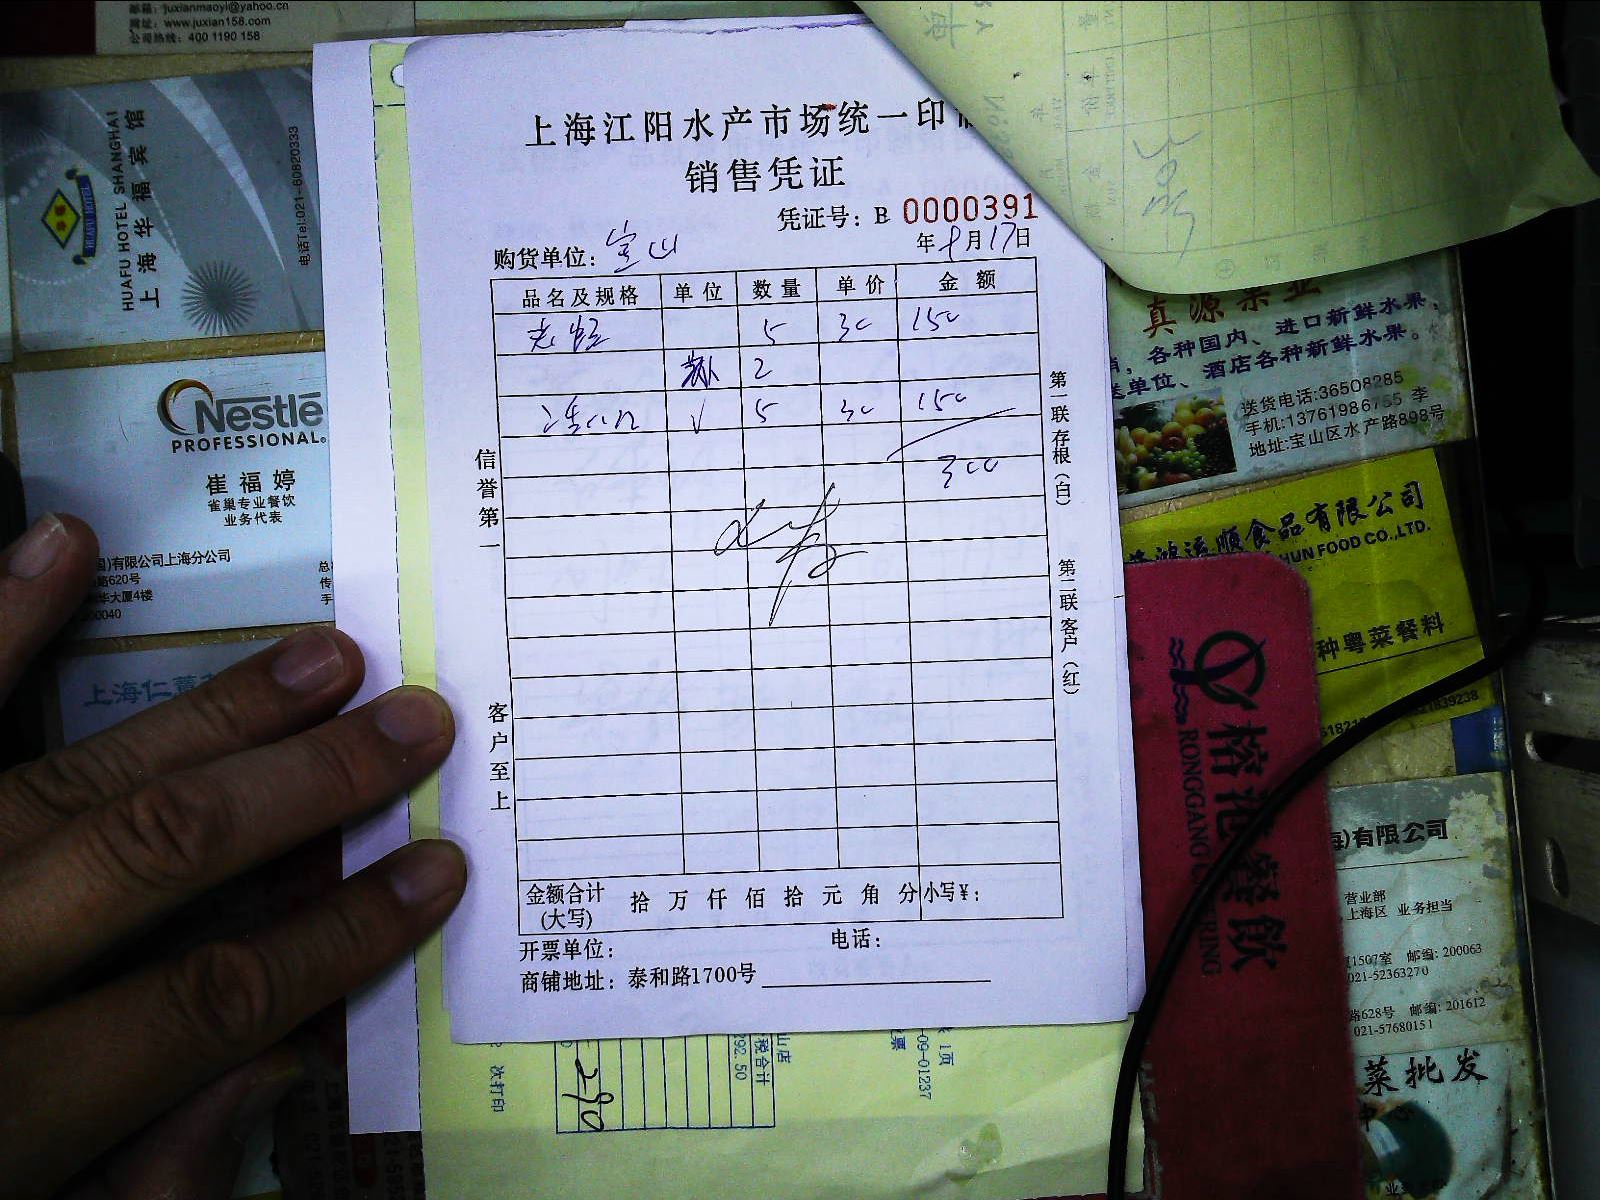 juxianmaoyi@yahoo.cn
网址：www.juxian158.com
公司热线：400 1190 158
HUAFU HOTEL SHANGHAI
上海华福宾馆
电话Tel:021-60820333
HUAFU HOTEL
Nestlé
PROFESSIONAL.
崔福婷
雀巢专业餐饮
业务代表
有限公司上海分公司
路620号
华大厦4楼
上海江阳水产市场统一印
销售凭证
凭证号：B 0000391
购货单位：宝山
年 8月17日
品名及规格 单位 数量 单价 金额
5 30 150
2
5 30 150
300
信誉第一
客户至上
第一联存根（白）
第二联客户（红）
金额合计（大写） 拾 万 仟 佰 拾 元 角 分 小写¥：
开票单位： 电话：
商铺地址：泰和路1700号
真源果业
各种国内、进口新鲜水果，
送单位、酒店各种新鲜水果。
送货电话:36508285
手机:13761986755 李
地址:宝山区水产路898号
鸿运顺食品有限公司
HUN FOOD CO.,LTD.
种粤菜餐料
榕港餐飲
RONGGANG CATERING
有限公司
营业部
上海区 业务担当
1507室 邮编：200063
021-52363270
路628号 邮编：201612
021-57680151
菜批发
税合计
292.50
290
次打印